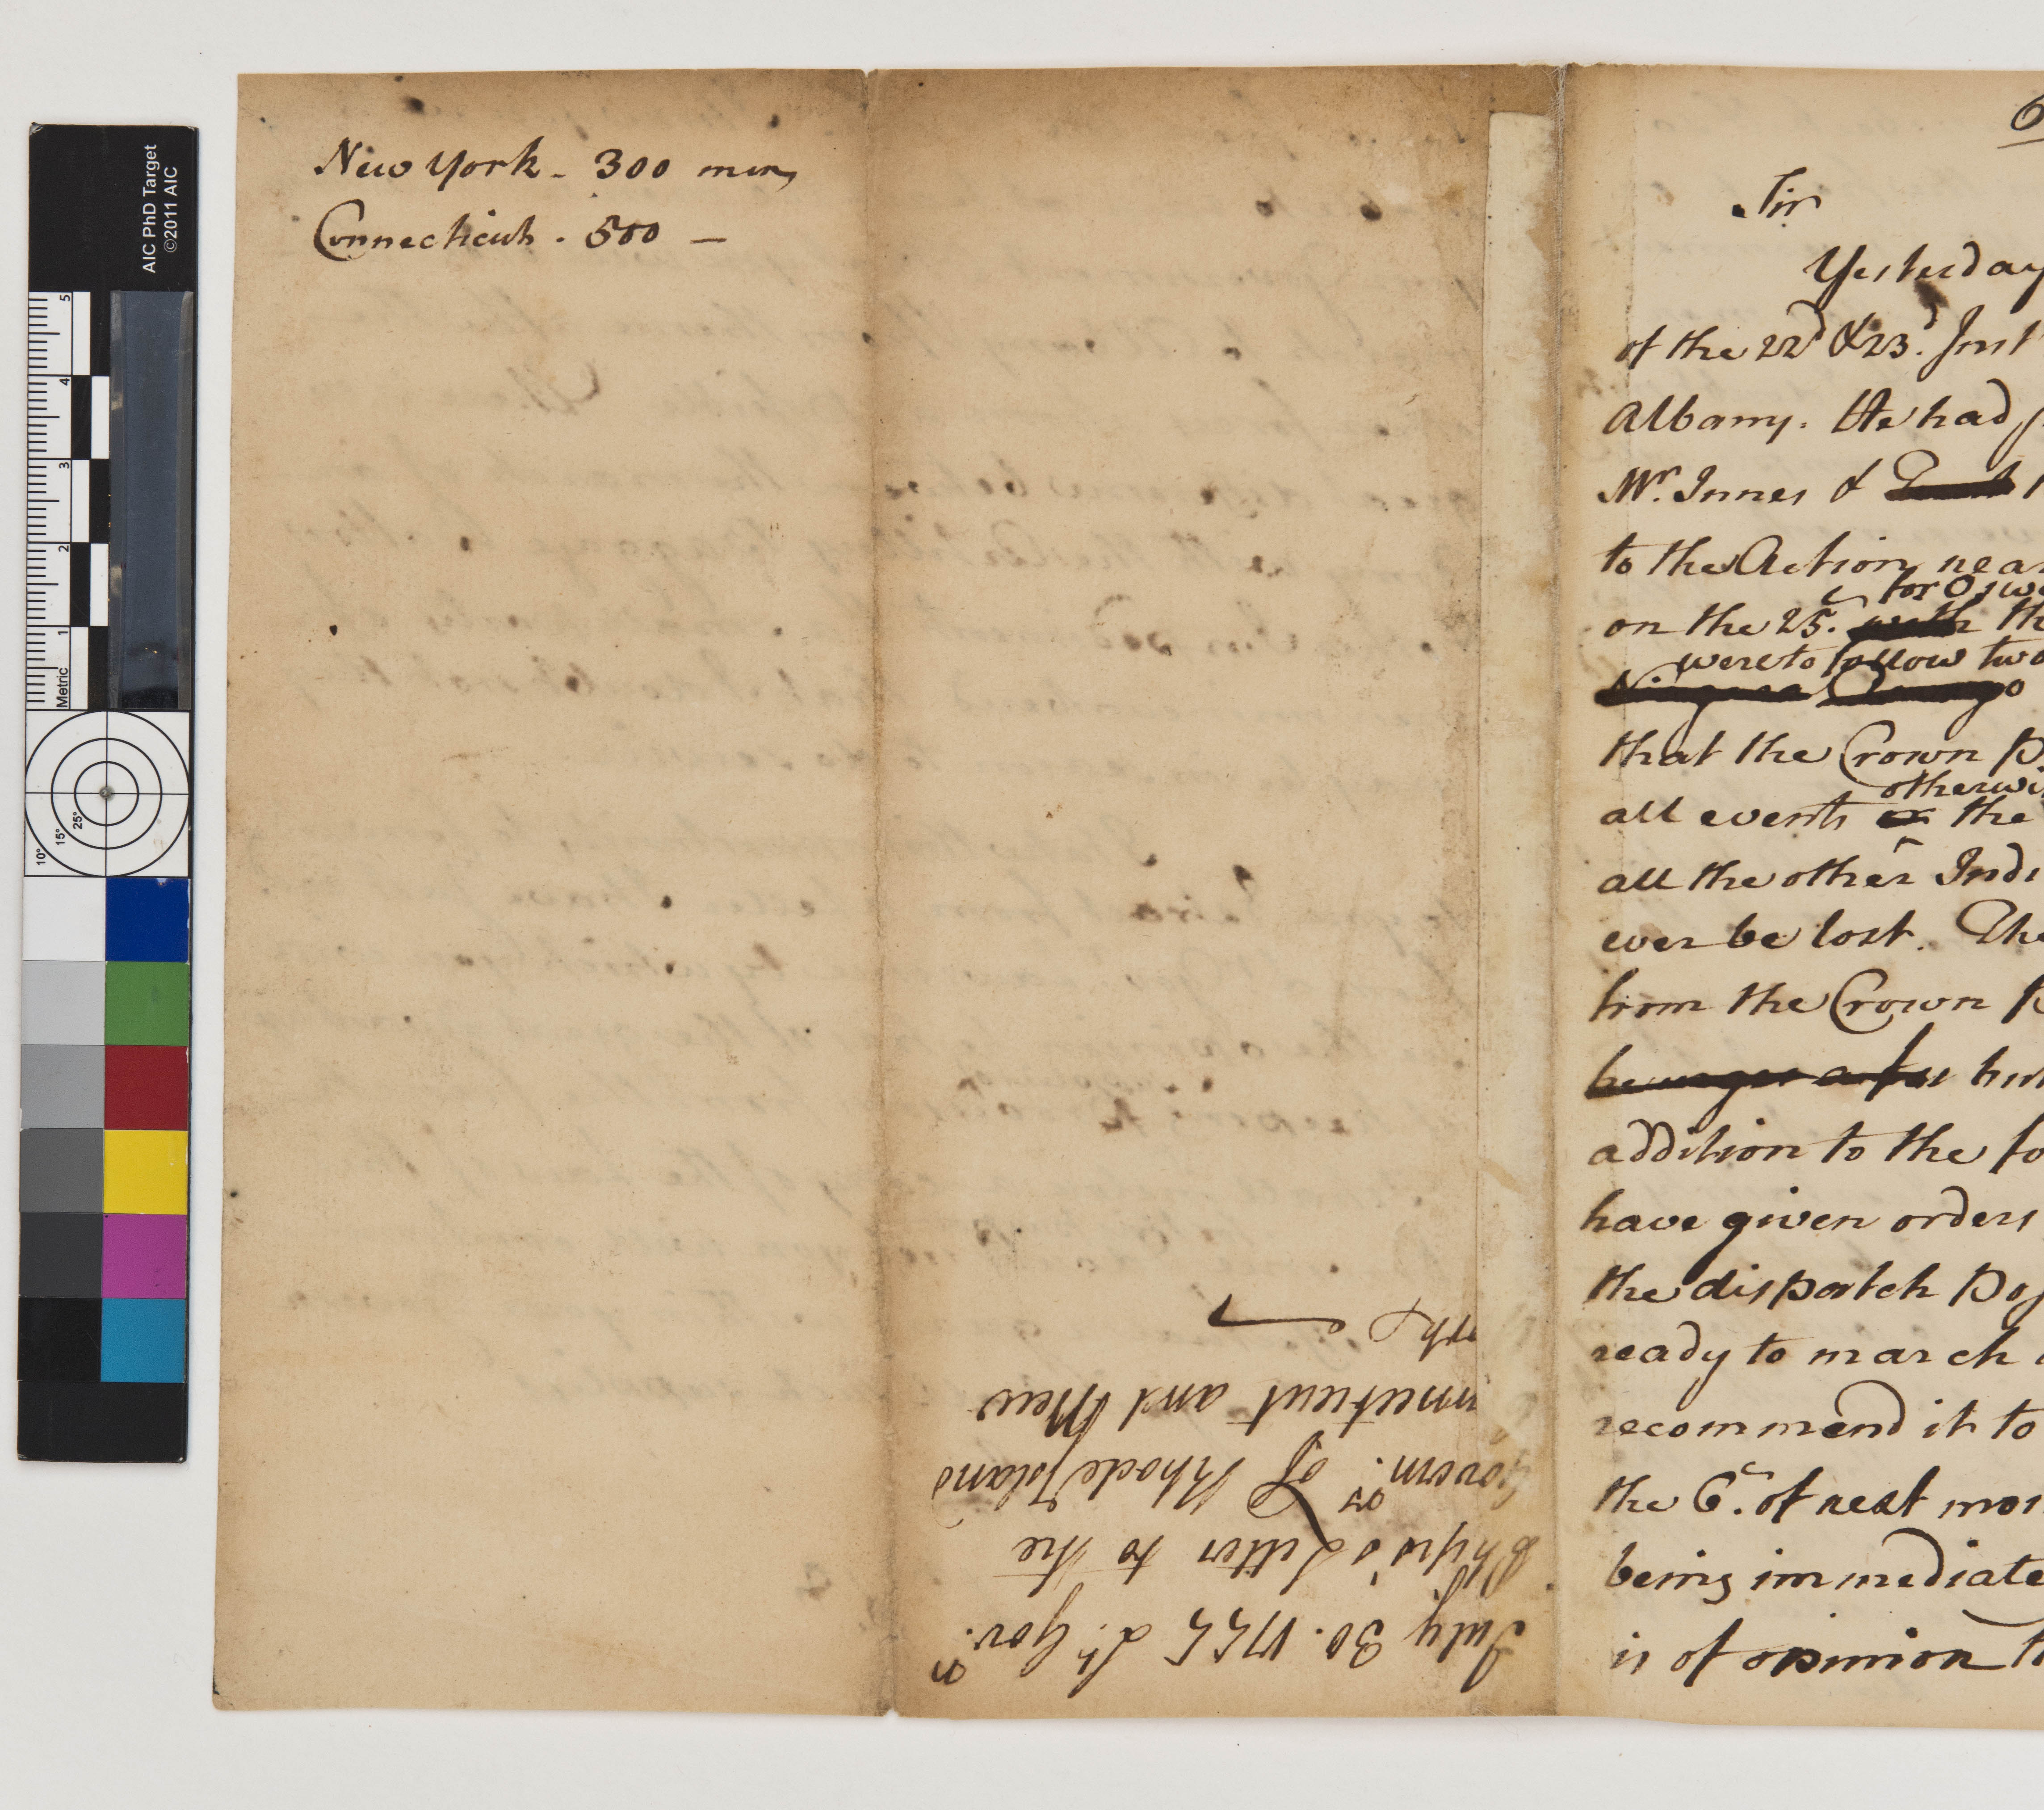 AIC PhD Target
©2011 AIC
5
4
3
2
1
Metric
10°
15°
25°
New York - 300 men
Connecticut - 500 -
July 30. 1755 Lt. Govr.
Phips's Letter to the
Governrs. of Rhode Island
nnecticut and New
ork
6
Sir
Yesterday
of the 22d & 23d. Inst
Albany. He had
Mr. Innes &
to the Action near
for Oswe
on the 25. with th
were to follow two
Niagara
that the Crown P
otherwi
all events or the
all the other Indi
ever be lost. The
from the Crown P
he urges
addition to the fo
have given orders
the dispatch pos
ready to march
recommend it to
the 6th. of next mon
being immediate
is of opinion th